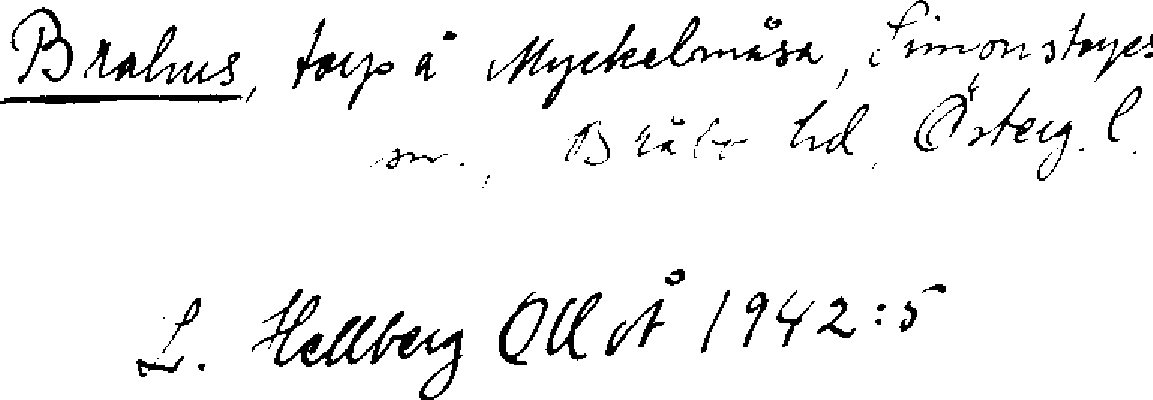 Brahus, torp å Myckelmåsa, Simonstorps
sn., Bråbo hd, Österg. l.
L. Hellberg OUOÅ 1942:5